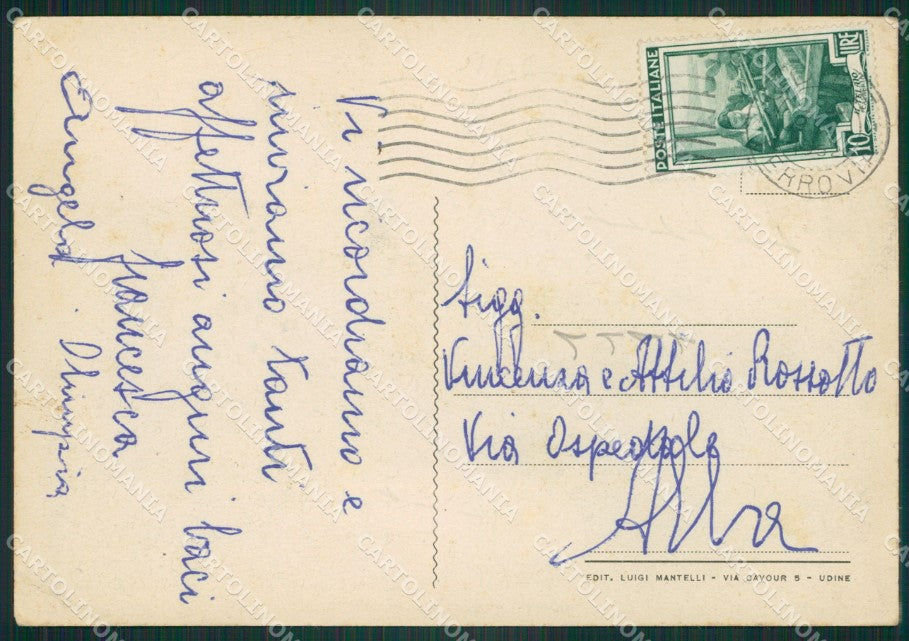 Vi ricordiamo e
inviamo tanti
affettuosi auguri baci
Francesca
Angela. Olimpia
POSTE ITALIANE
LIRE
10
FERROVIA
Sigg.
Vincenza e Attilio Rossotto
Via Ospedale
Alba
EDIT. LUIGI MANTELLI - VIA CAVOUR 5 - UDINE
CARTOLINOMANIA